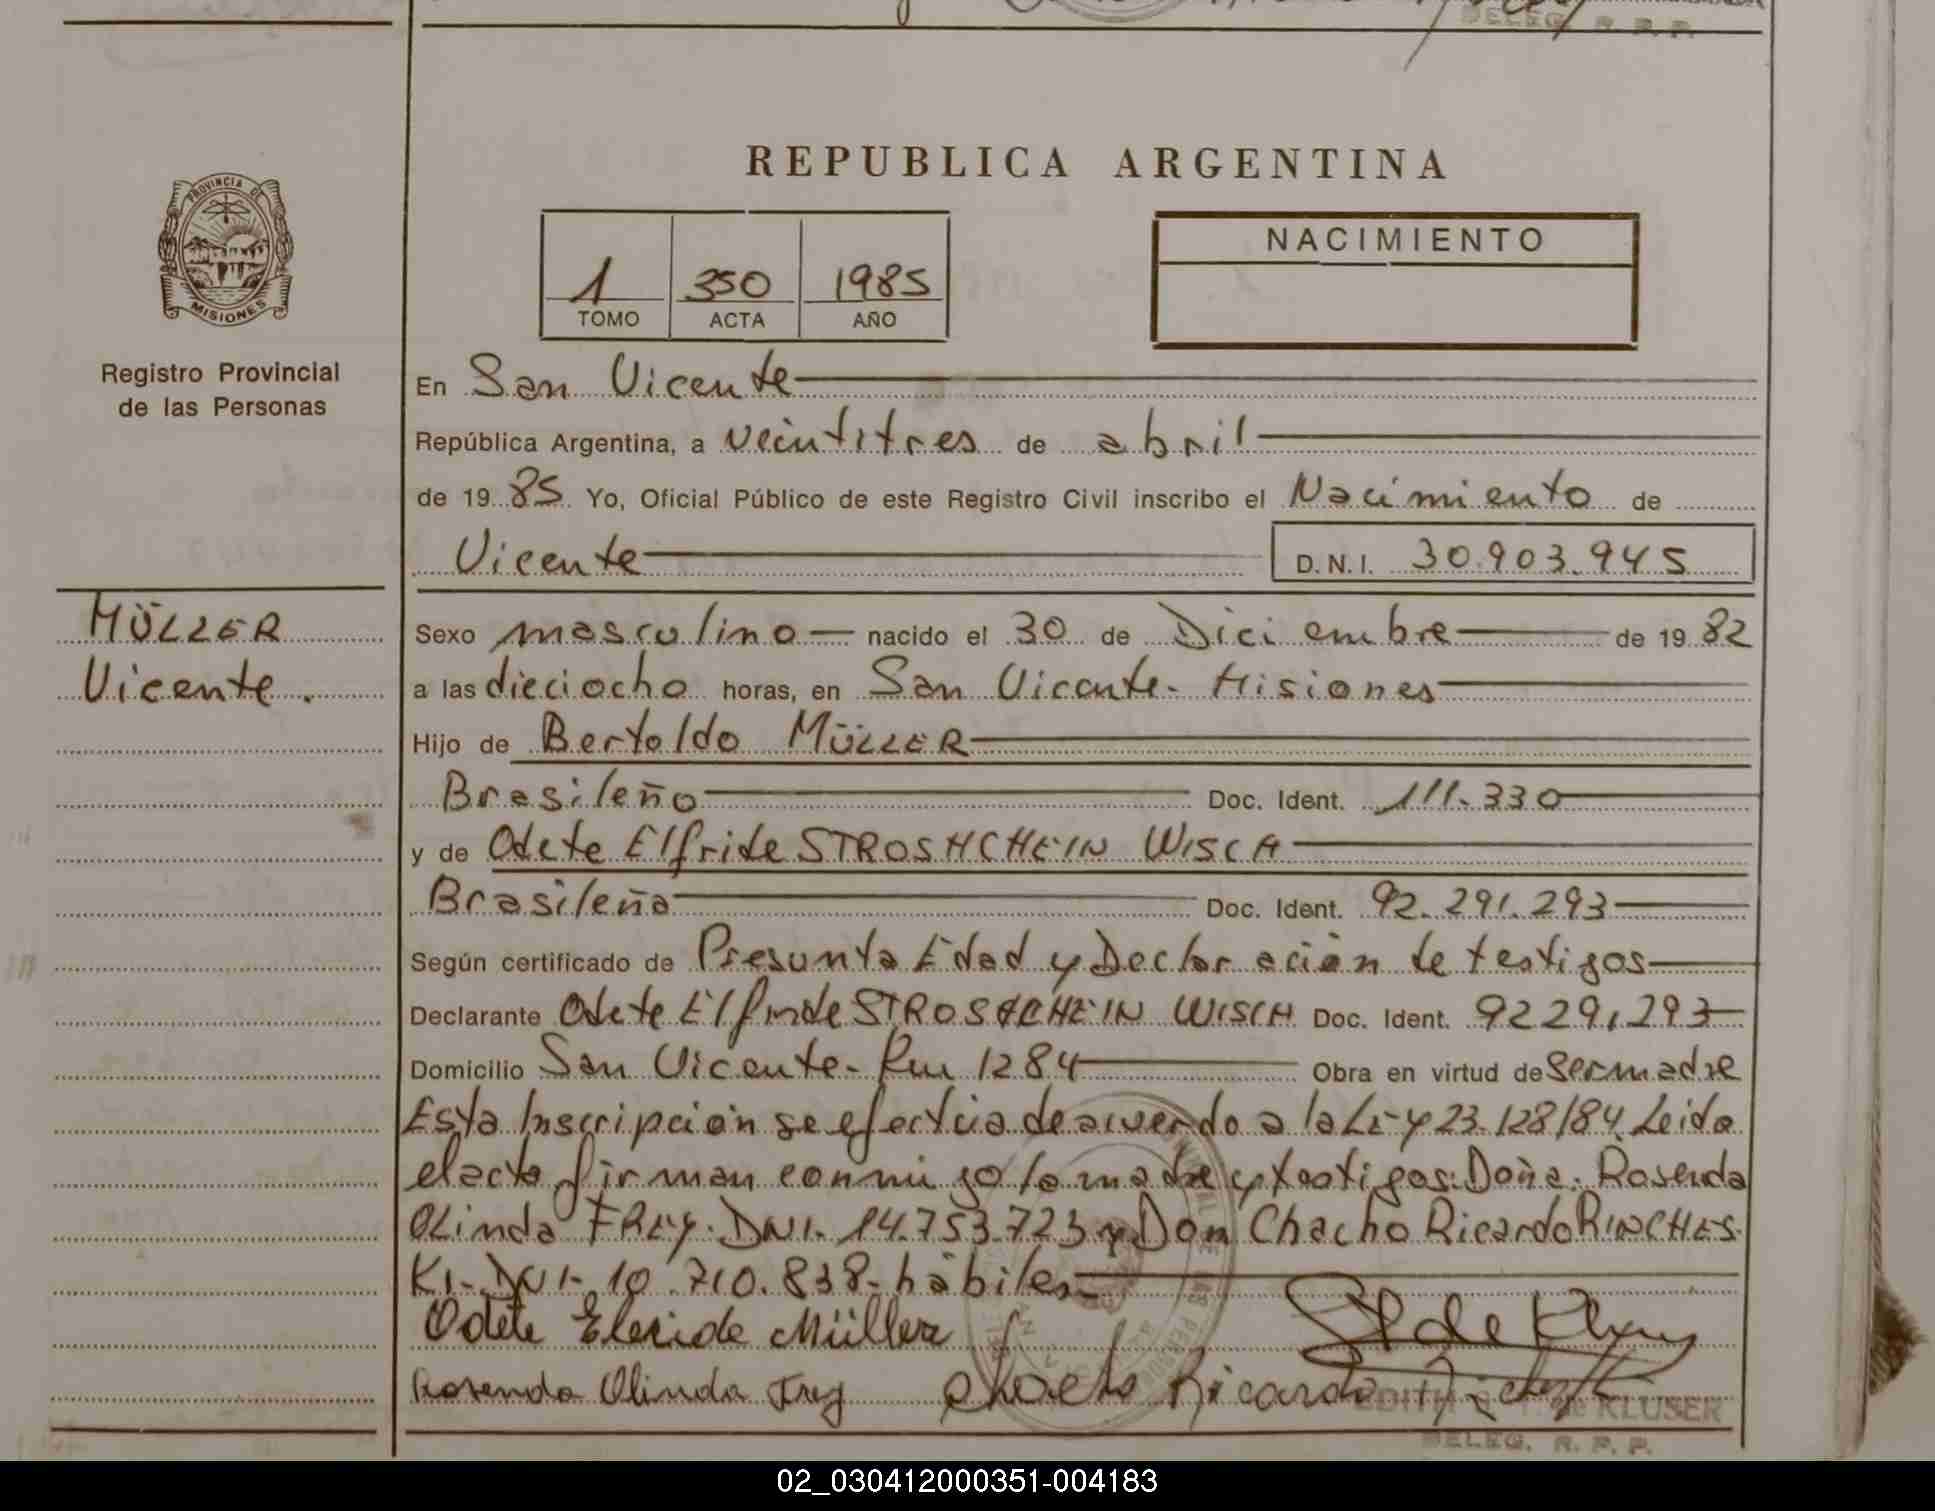 DELEG. R. P. P.
REPUBLICA ARGENTINA
PROVINCIA DE
MISIONES
Registro Provincial
de las Personas
1 350 1985
TOMO ACTA AÑO
NACIMIENTO
En San Vicente
República Argentina, a veintitres de abril
de 19 85 Yo, Oficial Público de este Registro Civil inscribo el Nacimiento de
Vicente D.N.I. 30.903.945
MÜLLER
Vicente.
Sexo masculino nacido el 30 de Diciembre de 19 82
a las dieciocho horas, en San Vicente - Misiones
Hijo de Bertoldo MÜLLER
Brasileño Doc. Ident. 111.330
y de Odete Elfride STROSHCHEIN WISCH
Brasileña Doc. Ident. 92.291.293
Según certificado de Presunta Edad y Declaración de testigos
Declarante Odete Elfride STROSHCHEIN WISCH Doc. Ident. 92291,293
Domicilio San Vicente - Km 1284 Obra en virtud de ser madre
Esta Inscripción se efectúa de acuerdo a la Ley 23.128/84. Leida
el acta firman conmigo la madre y testigos: Doña: Rosenda
Olinda FREY. DNI. 14.753.723 y Don Chacho Ricardo RINCHES.
KI- DNI- 10.710.838- hábiles
Odete Elfride Müller
Rosenda Olinda Frey Chacho Ricardo
EDITH KLUSER
DELEG. R. P. P.
02_030412000351-004183